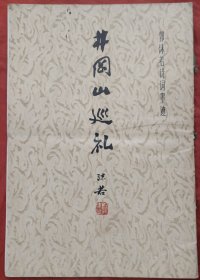 郭沫若诗词墨迹
井冈山巡礼
沫若